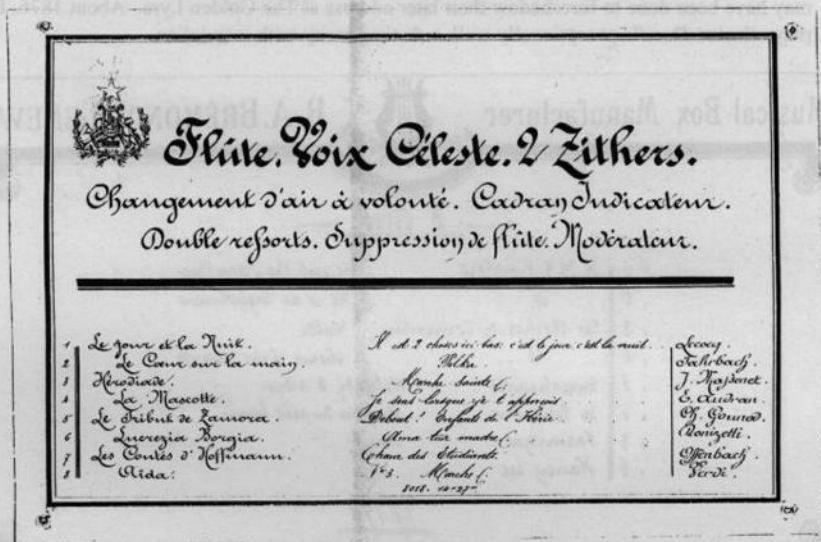 Flûte. Voix Céleste. 2 Zithers.
Changement d'air à volonté. Cadran Indicateur.
Double ressorts. Suppression de flûte. Modérateur.
1 Le Jour et la Nuit. Il est 2 choses ici bas: c'est le jour c'est la nuit. Lecocq.
2 Le Cœur sur la main. Polka. Fahrbach.
3 Hérodiade. Marche Sainte. J. Massenet.
4 La Mascotte. Je sens lorsque je t'aperçois E. Audran.
5 Le Tribut de Zamora. Debout! Enfants de l'Ibérie. Ch. Gounod.
6 Lucrezia Borgia. Ama tua madre. Donizetti.
7 Les Contes d'Hoffmann. Chœur des Etudiants. Offenbach.
8 Aida. Marche Verdi.
Musical Box Manufacturer B.A. BREMOND